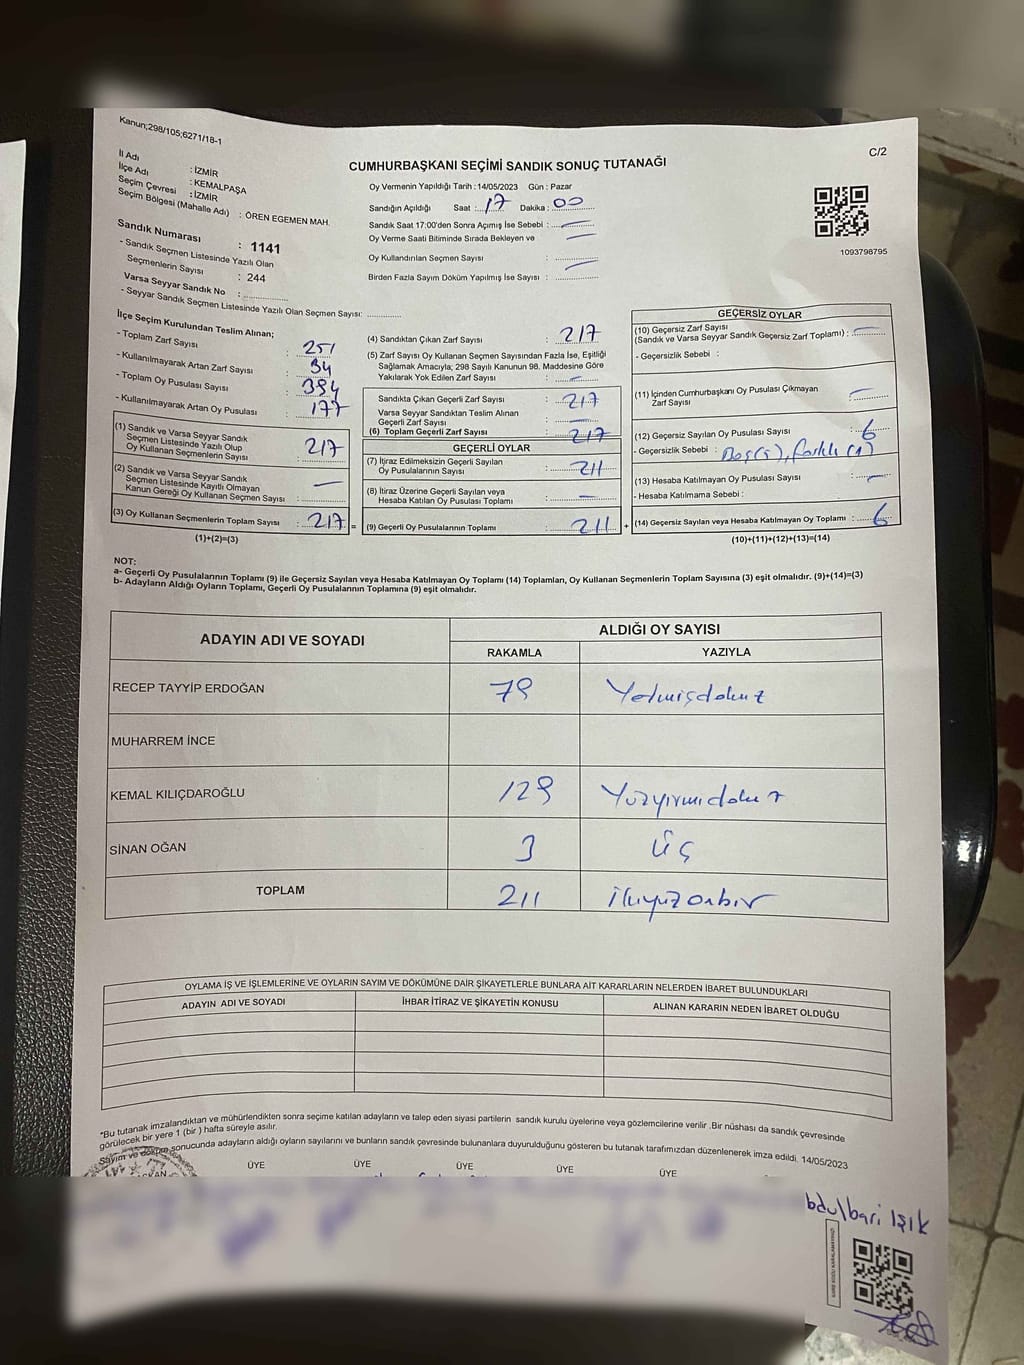 Kanun;298/105;6271/18-1
C/2
CUMHURBAŞKANI SEÇİMİ SANDIK SONUÇ TUTANAĞI
İl Adı : İZMİR
İlçe Adı : KEMALPAŞA
Seçim Çevresi : İZMİR
Seçim Bölgesi (Mahalle Adı) : ÖREN EGEMEN MAH.
Sandık Numarası : 1141
- Sandık Seçmen Listesinde Yazılı Olan
Seçmenlerin Sayısı : 244
Varsa Seyyar Sandık No :
- Seyyar Sandık Seçmen Listesinde Yazılı Olan Seçmen Sayısı:
Oy Vermenin Yapıldığı Tarih : 14/05/2023 Gün : Pazar
Sandığın Açıldığı Saat : 17 Dakika : 00
Sandık Saat 17:00'den Sonra Açımış İse Sebebi : —
Oy Verme Saati Bitiminde Sırada Bekleyen ve —
Oy Kullandırılan Seçmen Sayısı :
Birden Fazla Sayım Döküm Yapılmış İse Sayısı : —
1093798795
İlçe Seçim Kurulundan Teslim Alınan;
- Toplam Zarf Sayısı : 251
- Kullanılmayarak Artan Zarf Sayısı : 34
- Toplam Oy Pusulası Sayısı : 394
- Kullanılmayarak Artan Oy Pusulası : 177
(1) Sandık ve Varsa Seyyar Sandık
Seçmen Listesinde Yazılı Olup
Oy Kullanan Seçmenlerin Sayısı : 217
(2) Sandık ve Varsa Seyyar Sandık
Seçmen Listesinde Kayıtlı Olmayan
Kanun Gereği Oy Kullanan Seçmen Sayısı : —
(3) Oy Kullanan Seçmenlerin Toplam Sayısı : 217 =
(1)+(2)=(3)
(4) Sandıktan Çıkan Zarf Sayısı : 217
(5) Zarf Sayısı Oy Kullanan Seçmen Sayısından Fazla İse, Eşitliği
Sağlamak Amacıyla; 298 Sayılı Kanunun 98. Maddesine Göre
Yakılarak Yok Edilen Zarf Sayısı : —
Sandıkta Çıkan Geçerli Zarf Sayısı : 217
Varsa Seyyar Sandıktan Teslim Alınan
Geçerli Zarf Sayısı : —
(6) Toplam Geçerli Zarf Sayısı : 217
GEÇERLİ OYLAR
(7) İtiraz Edilmeksizin Geçerli Sayılan
Oy Pusulalarının Sayısı : 211
(8) İtiraz Üzerine Geçerli Sayılan veya
Hesaba Katılan Oy Pusulası Toplamı : —
(9) Geçerli Oy Pusulalarının Toplamı : 211 +
GEÇERSİZ OYLAR
(10) Geçersiz Zarf Sayısı
(Sandık ve Varsa Seyyar Sandık Geçersiz Zarf Toplamı) : —
- Geçersizlik Sebebi :
(11) İçinden Cumhurbaşkanı Oy Pusulası Çıkmayan
Zarf Sayısı : —
(12) Geçersiz Sayılan Oy Pusulası Sayısı : 6
- Geçersizlik Sebebi : Boş(5), farklı (1)
(13) Hesaba Katılmayan Oy Pusulası Sayısı : —
- Hesaba Katılmama Sebebi :
(14) Geçersiz Sayılan veya Hesaba Katılmayan Oy Toplamı : 6
(10)+(11)+(12)+(13)=(14)
NOT:
a- Geçerli Oy Pusulalarının Toplamı (9) ile Geçersiz Sayılan veya Hesaba Katılmayan Oy Toplamı (14) Toplamları, Oy Kullanan Seçmenlerin Toplam Sayısına (3) eşit olmalıdır. (9)+(14)=(3)
b- Adayların Aldığı Oyların Toplamı, Geçerli Oy Pusulalarının Toplamına (9) eşit olmalıdır.
ADAYIN ADI VE SOYADI
ALDIĞI OY SAYISI
RAKAMLA YAZIYLA
RECEP TAYYİP ERDOĞAN 79 Yetmişdokuz
MUHARREM İNCE
KEMAL KILIÇDAROĞLU 129 Yüzyirmidokuz
SİNAN OĞAN 3 üç
TOPLAM 211 ikiyüzonbir
OYLAMA İŞ VE İŞLEMLERİNE VE OYLARIN SAYIM VE DÖKÜMÜNE DAİR ŞİKAYETLERLE BUNLARA AİT KARARLARIN NELERDEN İBARET BULUNDUKLARI
ADAYIN ADI VE SOYADI İHBAR İTİRAZ VE ŞİKAYETİN KONUSU ALINAN KARARIN NEDEN İBARET OLDUĞU
*Bu tutanak imzalandıktan ve mühürlendikten sonra seçime katılan adayların ve talep eden siyasi partilerin sandık kurulu üyelerine veya gözlemcilerine verilir .Bir nüshası da sandık çevresinde
görülecek bir yere 1 (bir ) hafta süreyle asılır.
Sayım ve döküm sonucunda adayların aldığı oyların sayılarını ve bunların sandık çevresinde bulunanlara duyurulduğunu gösteren bu tutanak tarafımızdan düzenlenerek imza edildi. 14/05/2023
ÜYE ÜYE ÜYE ÜYE ÜYE
bdulbari Işık